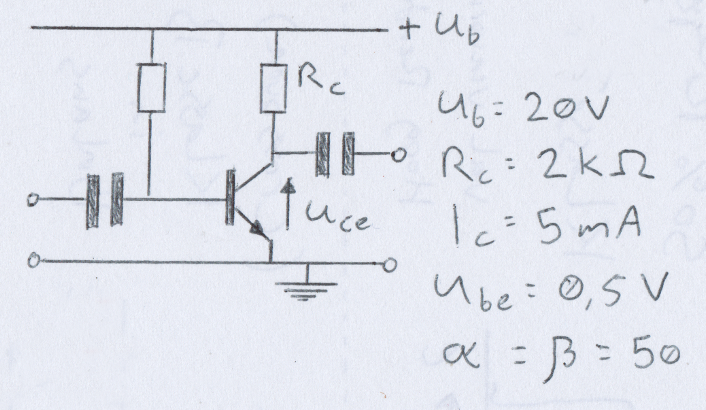 + Ub
Rc
Uce
Ub = 20V
Rc = 2 kΩ
Ic = 5 mA
Ube = 0,5 V
α = β = 50